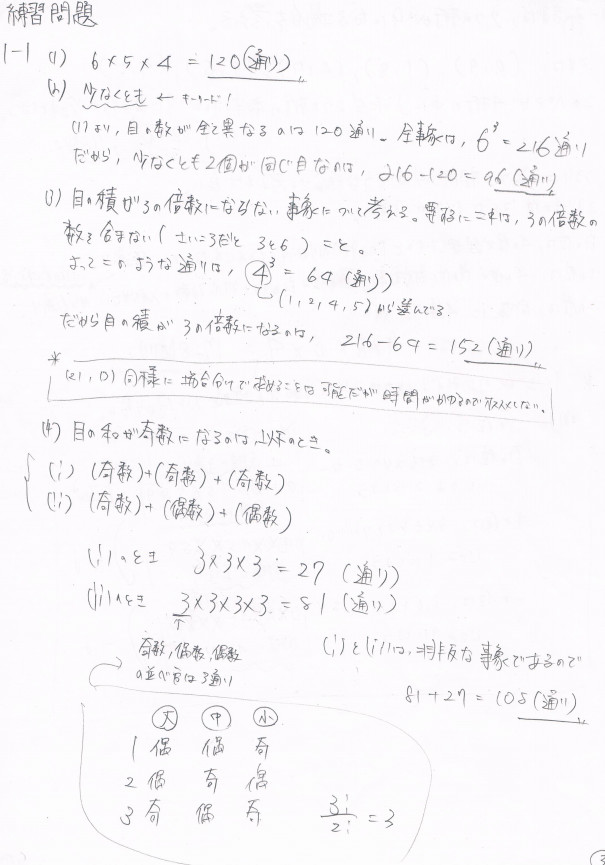 練習問題
1-1 (1) 6×5×4 = 120(通り)
(2) 少なくとも ← キーワード!
(1)より, 目の数が全て異なるのは120通り。全事象は, 6³ = 216通り
だから, 少なくとも2個が同じ目なのは, 216-120 = 96(通り)
(3) 目の積が3の倍数にならない事象について考える。要するにこれは, 3の倍数の
数を含まない(さいころだと 3と6)こと。
よってこのような通りは, 4³ = 64(通り)
(1,2,4,5)から選んでる
だから目の積が3の倍数になるのは, 216-64 = 152(通り)
*
同様に場合分けで求めることは可能だが時間がかかるのでオススメしない。
(4) 目の和が奇数になるのは以下のとき。
(i) (奇数)+(奇数)+(奇数)
(ii) (奇数)+(偶数)+(偶数)
(i)のとき 3×3×3 = 27 (通り)
(ii)のとき 3×3×3×3 = 81 (通り)
奇数,偶数,偶数
の並べ方は3通り
(i)と(ii)は,排反な事象であるので
81+27 = 108(通り)
大 中 小
1 偶 偶 奇
2 偶 奇 偶
3 奇 偶 奇
3!/2! = 3
3